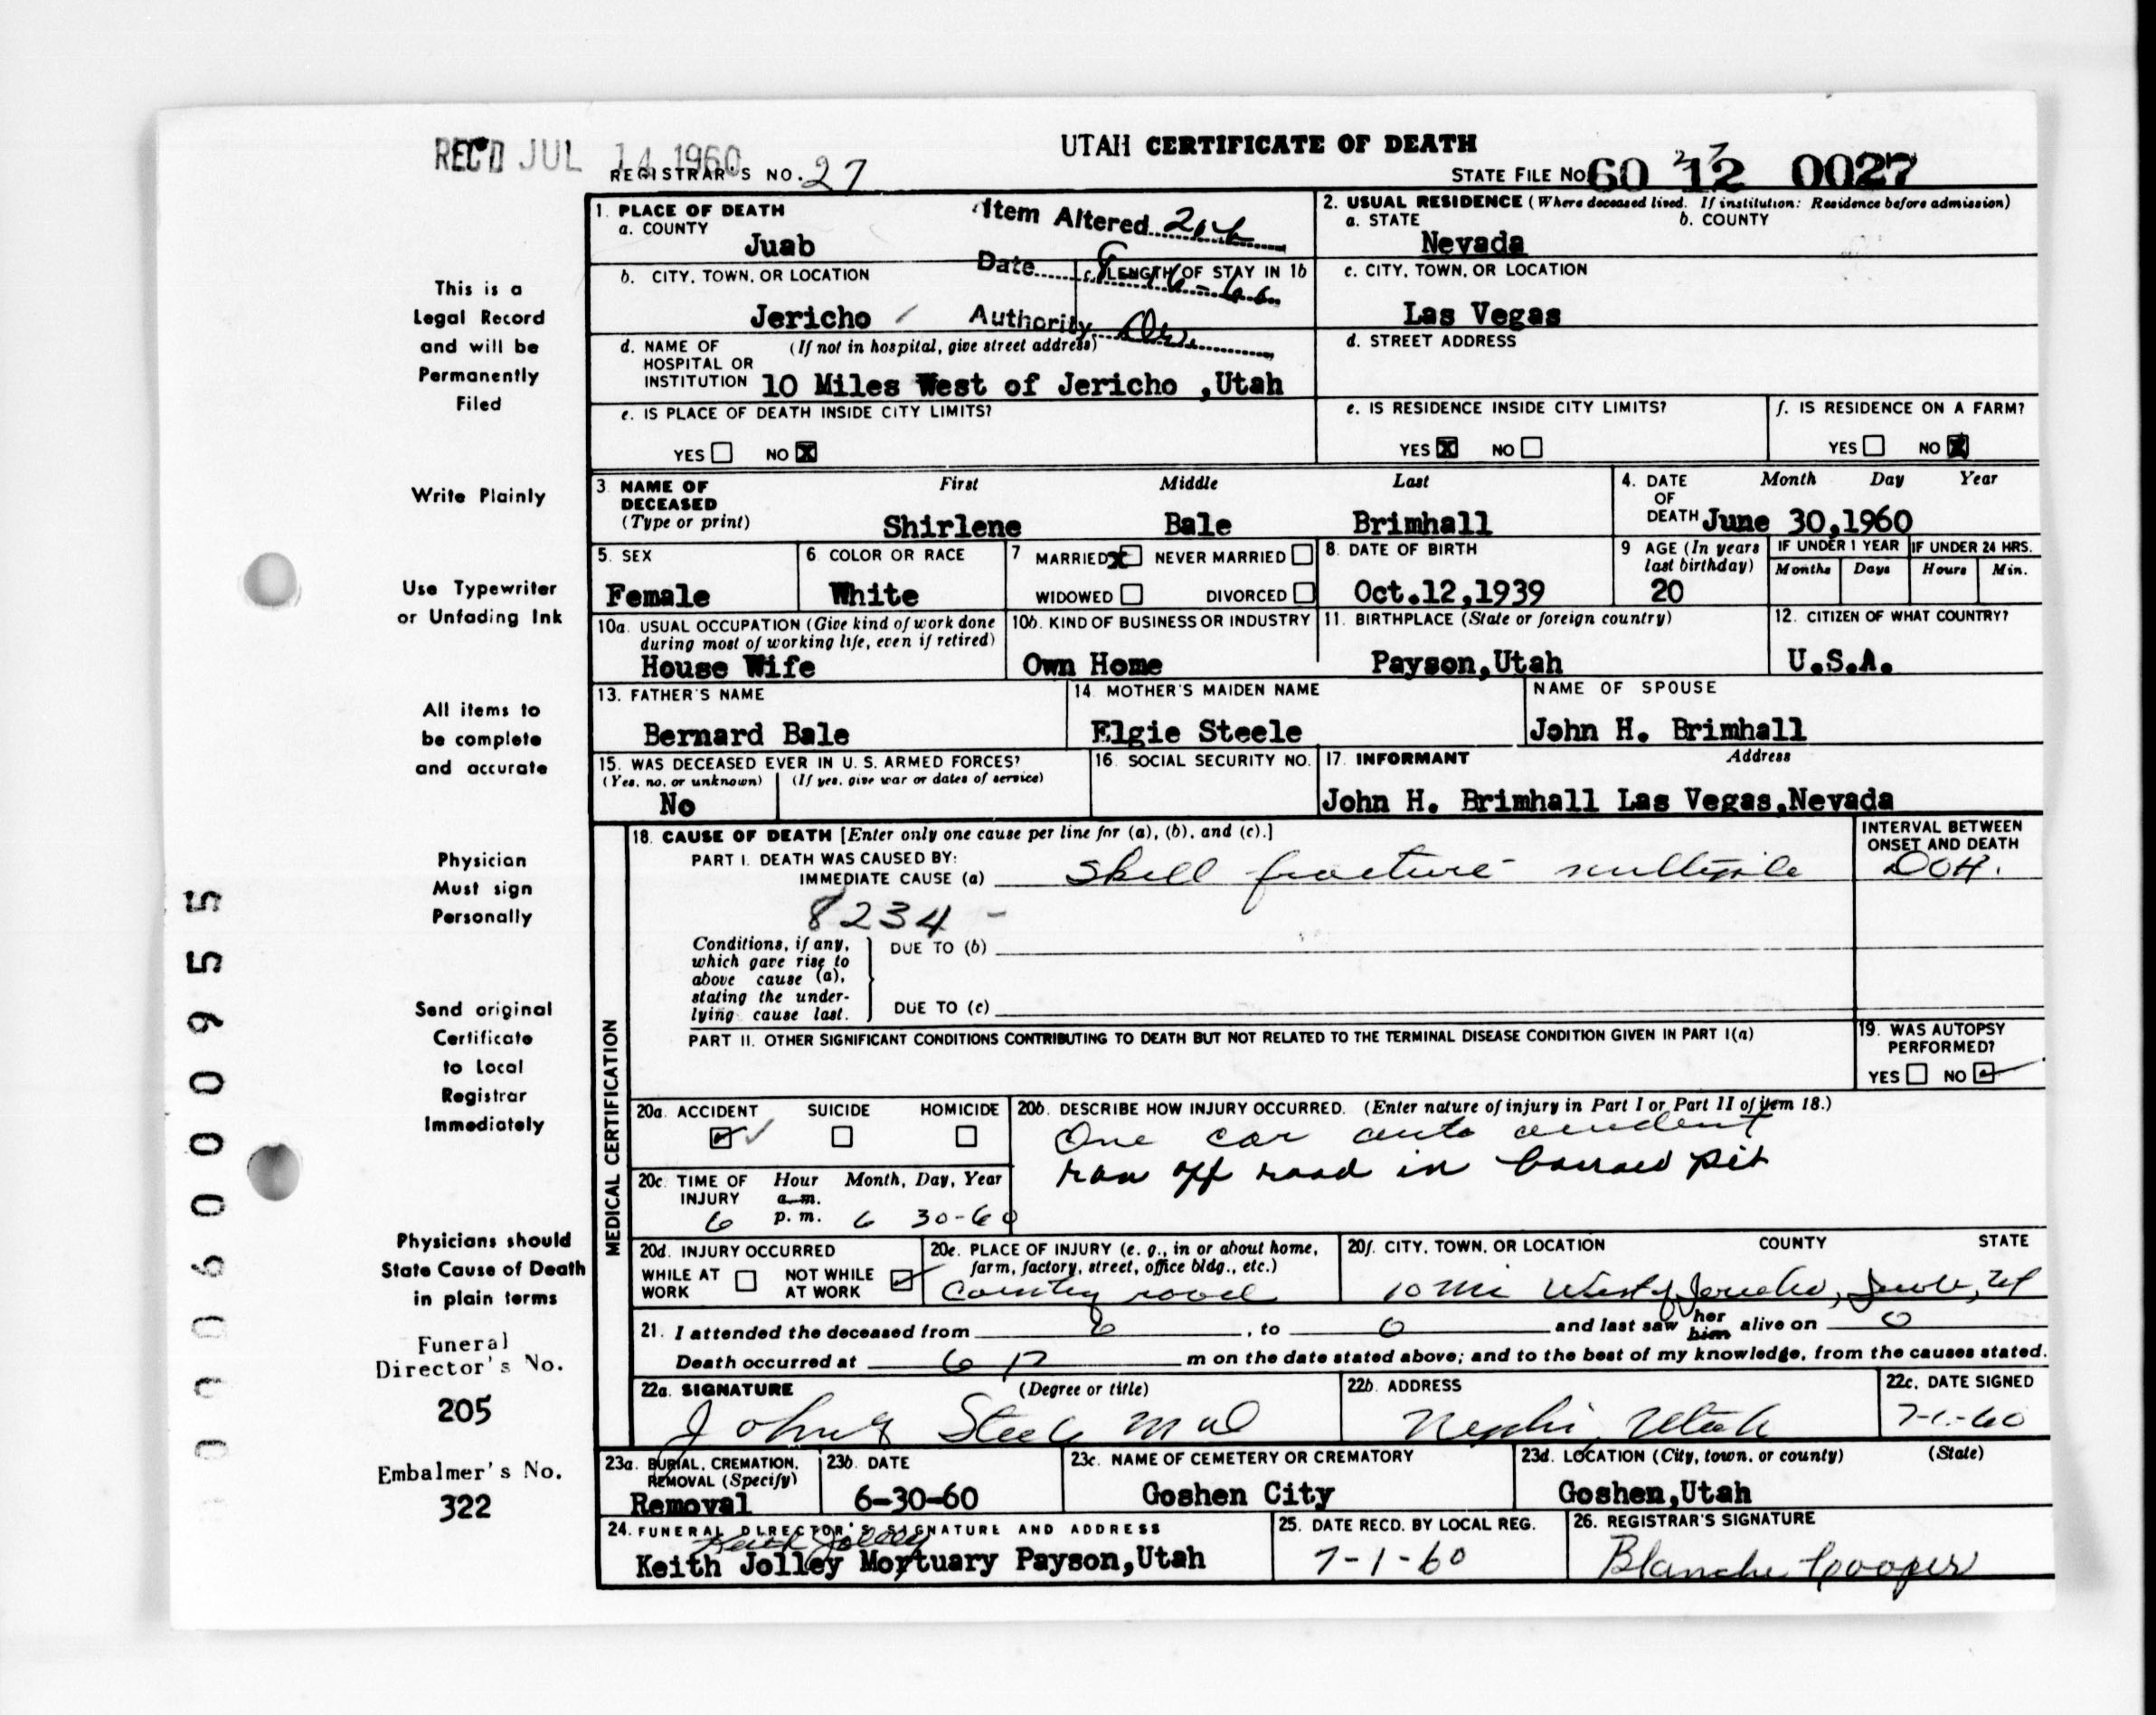 REC'D JUL 14 1960
UTAH CERTIFICATE OF DEATH
REGISTRAR'S NO. 27
STATE FILE NO. 60 12 0027
27
1. PLACE OF DEATH
a. COUNTY
Juab
Item Altered 20b
Date
Authority
b. CITY, TOWN, OR LOCATION
Jericho
c. LENGTH OF STAY IN 1b
d. NAME OF HOSPITAL OR INSTITUTION
(If not in hospital, give street address)
10 Miles West of Jericho ,Utah
e. IS PLACE OF DEATH INSIDE CITY LIMITS?
YES NO X
2. USUAL RESIDENCE (Where deceased lived. If institution: Residence before admission)
a. STATE b. COUNTY
Nevada
c. CITY, TOWN, OR LOCATION
Las Vegas
d. STREET ADDRESS
e. IS RESIDENCE INSIDE CITY LIMITS?
YES X NO
f. IS RESIDENCE ON A FARM?
YES NO X
3. NAME OF DECEASED
(Type or print)
First Middle Last
Shirlene Bale Brimhall
4. DATE OF DEATH
Month Day Year
June 30,1960
5. SEX
Female
6. COLOR OR RACE
White
7 MARRIED X NEVER MARRIED
WIDOWED DIVORCED
8. DATE OF BIRTH
Oct.12,1939
9 AGE (In years last birthday)
20
IF UNDER 1 YEAR
Months Days
IF UNDER 24 HRS.
Hours Min.
10a. USUAL OCCUPATION (Give kind of work done during most of working life, even if retired)
House Wife
10b. KIND OF BUSINESS OR INDUSTRY
Own Home
11. BIRTHPLACE (State or foreign country)
Payson,Utah
12. CITIZEN OF WHAT COUNTRY?
U.S.A.
13. FATHER'S NAME
Bernard Bale
14. MOTHER'S MAIDEN NAME
Elgie Steele
NAME OF SPOUSE
John H. Brimhall
15. WAS DECEASED EVER IN U. S. ARMED FORCES?
(Yes, no, or unknown) (If yes, give war or dates of service)
No
16. SOCIAL SECURITY NO.
17. INFORMANT Address
John H. Brimhall Las Vegas,Nevada
MEDICAL CERTIFICATION
18. CAUSE OF DEATH [Enter only one cause per line for (a), (b), and (c).]
PART I. DEATH WAS CAUSED BY:
IMMEDIATE CAUSE (a) Skull fracture - multiple
8234 -
INTERVAL BETWEEN ONSET AND DEATH
DOA.
Conditions, if any, which gave rise to above cause (a), stating the underlying cause last.
DUE TO (b)
DUE TO (c)
PART II. OTHER SIGNIFICANT CONDITIONS CONTRIBUTING TO DEATH BUT NOT RELATED TO THE TERMINAL DISEASE CONDITION GIVEN IN PART I(a)
19. WAS AUTOPSY PERFORMED?
YES NO
20a. ACCIDENT SUICIDE HOMICIDE
20b. DESCRIBE HOW INJURY OCCURRED. (Enter nature of injury in Part I or Part II of item 18.)
One car auto accident
ran off road in borrow pit
20c. TIME OF INJURY
Hour Month, Day, Year
a.m.
p. m.
6 6 30-60
20d. INJURY OCCURRED
WHILE AT WORK NOT WHILE AT WORK
20e. PLACE OF INJURY (e. g., in or about home, farm, factory, street, office bldg., etc.)
Country road
20f. CITY, TOWN, OR LOCATION COUNTY STATE
10 mi West of Jericho, Juab, Ut
21. I attended the deceased from 0, to 0 and last saw her him alive on 0
Death occurred at 6 P m on the date stated above; and to the best of my knowledge, from the causes stated.
22a. SIGNATURE (Degree or title)
John Steele MD
22b. ADDRESS
Nephi, Utah
22c. DATE SIGNED
7-1-60
23a. BURIAL, CREMATION, REMOVAL (Specify)
Removal
23b. DATE
6-30-60
23c. NAME OF CEMETERY OR CREMATORY
Goshen City
23d. LOCATION (City, town, or county) (State)
Goshen,Utah
24. FUNERAL DIRECTOR'S SIGNATURE AND ADDRESS
Keith Jolley
Keith Jolley Mortuary Payson,Utah
25. DATE RECD. BY LOCAL REG.
7-1-60
26. REGISTRAR'S SIGNATURE
Blanche Cooper
This is a
Legal Record
and will be
Permanently
Filed
Write Plainly
Use Typewriter
or Unfading Ink
All items to
be complete
and accurate
Physician
Must sign
Personally
Send original
Certificate
to Local
Registrar
Immediately
Physicians should
State Cause of Death
in plain terms
Funeral
Director's No.
205
Embalmer's No.
322